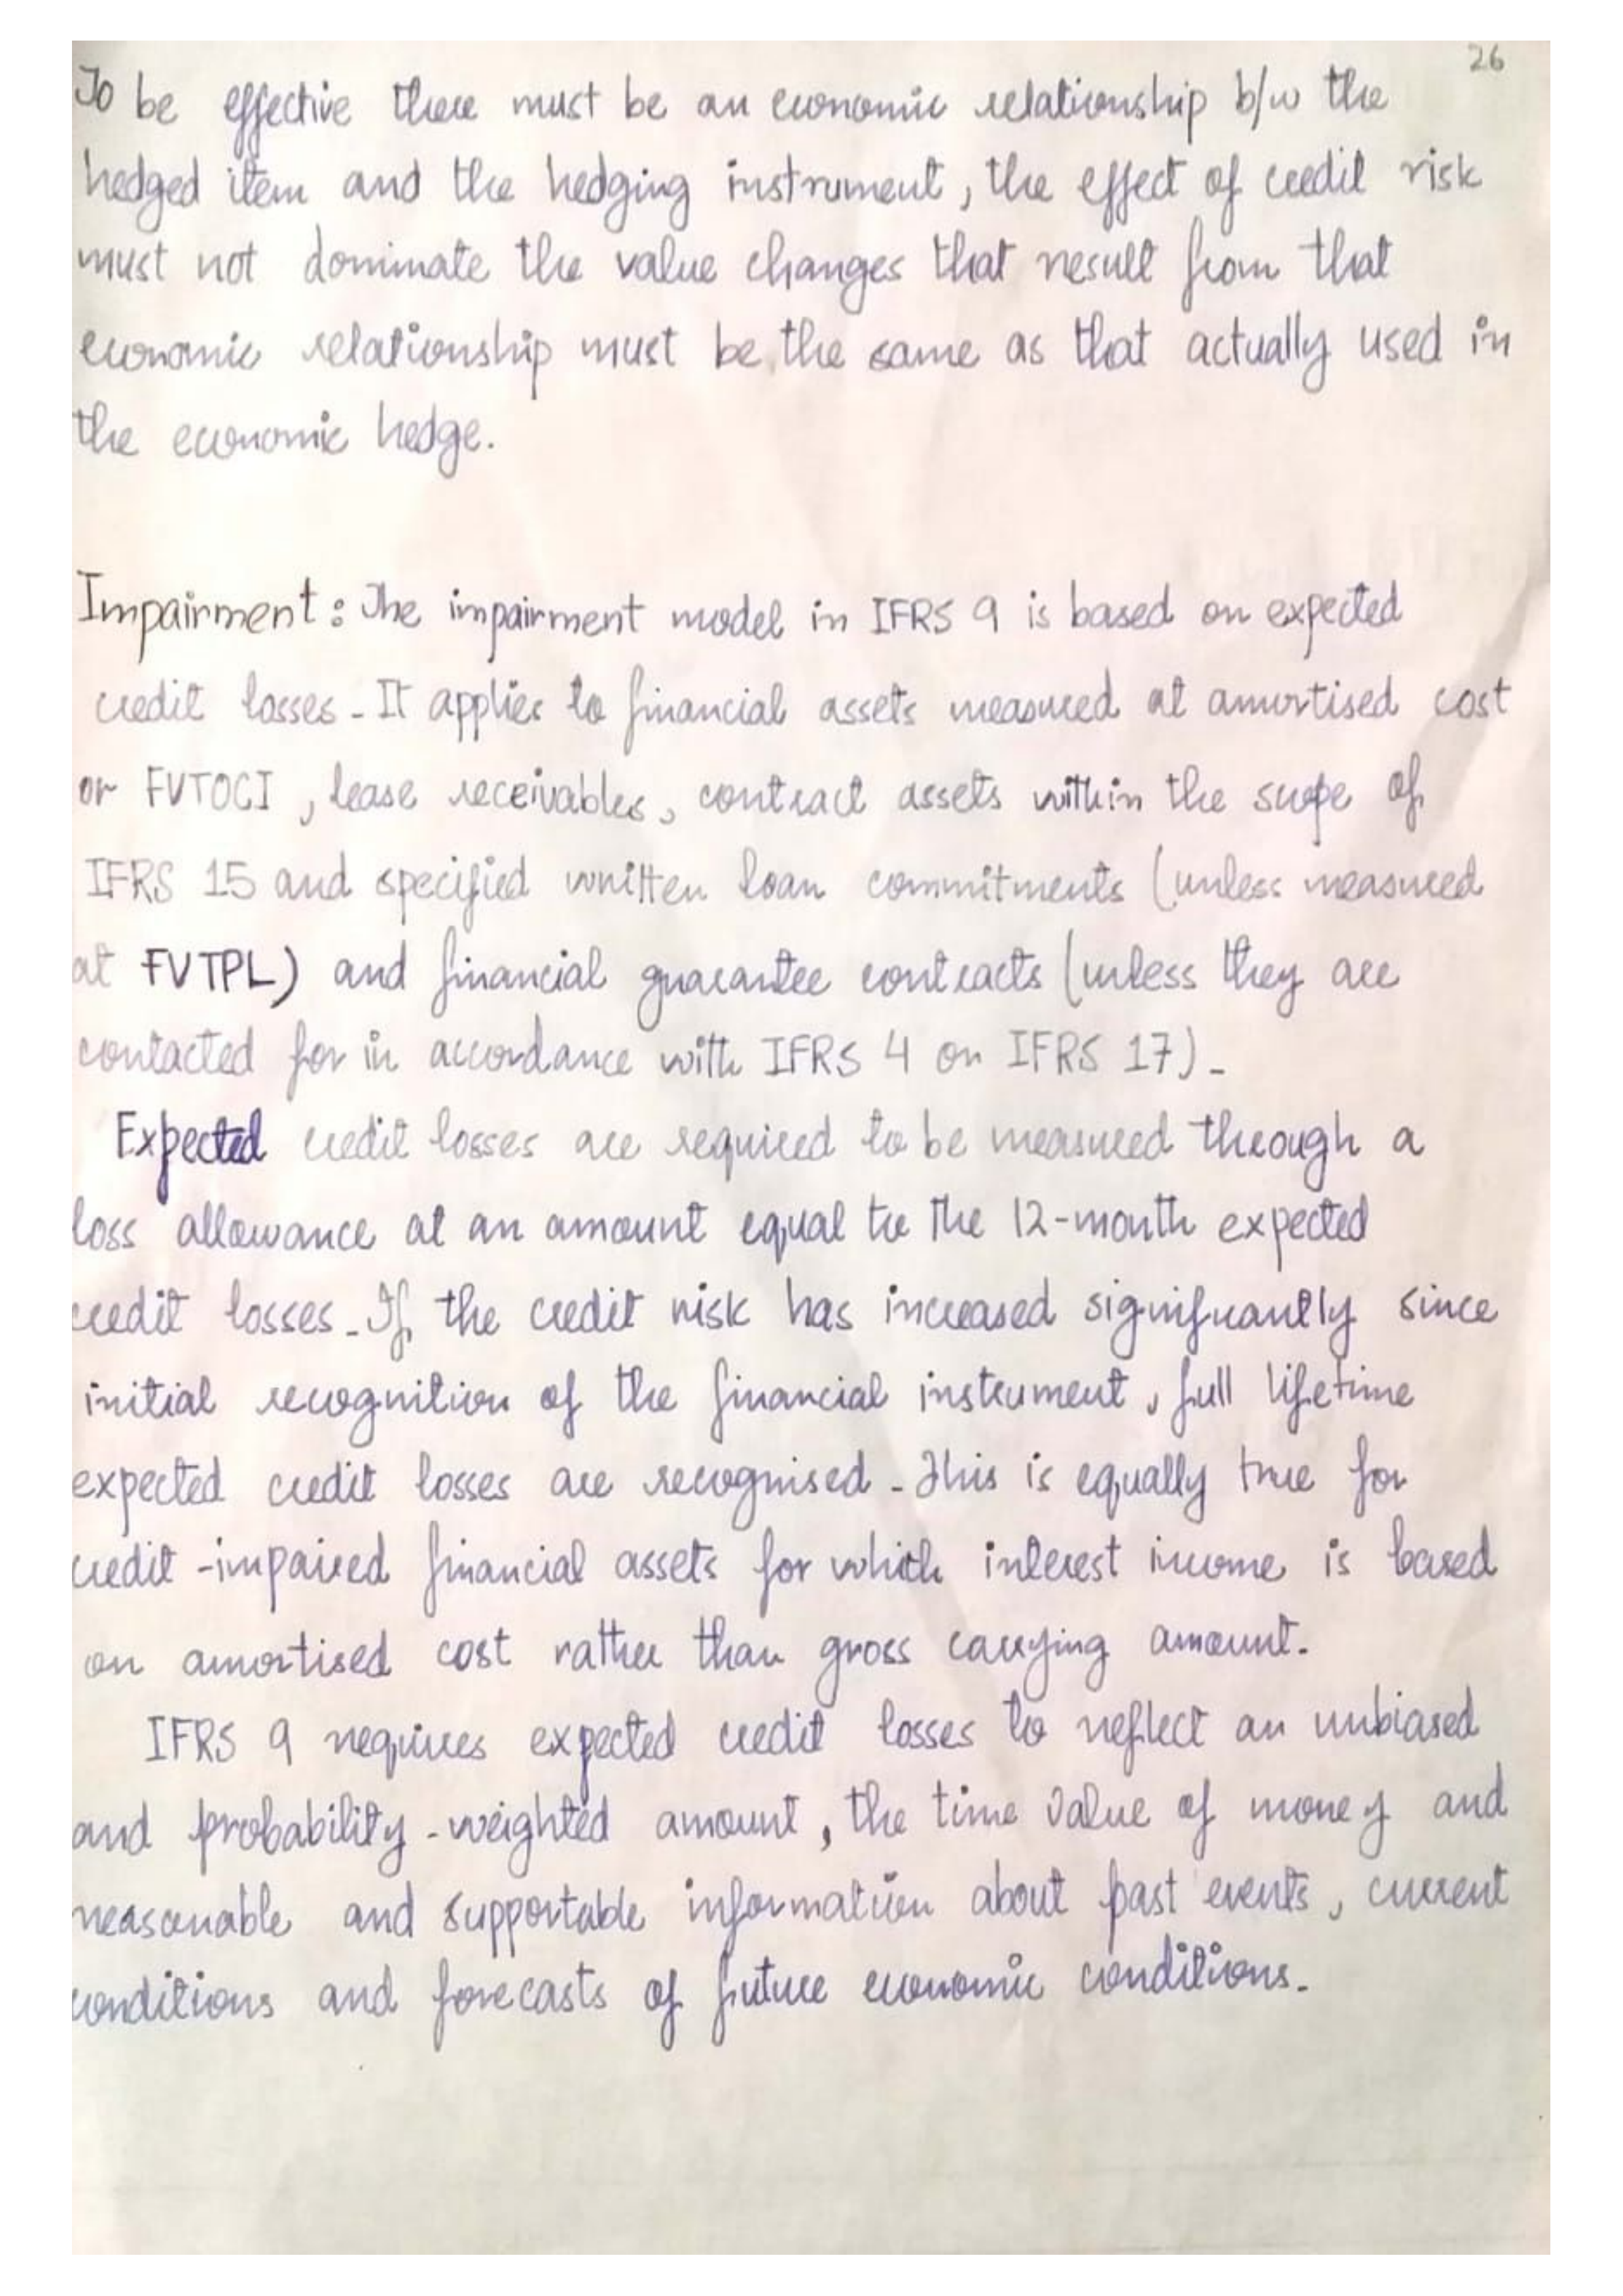 26
To be effective there must be an economic relationship b/w the
hedged item and the hedging instrument, the effect of credit risk
must not dominate the value changes that result from that
economic relationship must be the same as that actually used in
the economic hedge.
Impairment: The impairment model in IFRS 9 is based on expected
credit losses. It applies to financial assets measured at amortised cost
or FVTOCI, lease receivables, contract assets within the scope of
IFRS 15 and specified written loan commitments (unless measured
at FVTPL) and financial guarantee contracts (unless they are
contacted for in accordance with IFRS 4 or IFRS 17).
Expected credit losses are required to be measured through a
loss allowance at an amount equal to the 12-month expected
credit losses. If the credit risk has increased significantly since
initial recognition of the financial instrument, full lifetime
expected credit losses are recognised. This is equally true for
credit-impaired financial assets for which interest income is based
on amortised cost rather than gross carrying amount.
IFRS 9 requires expected credit losses to reflect an unbiased
and probability-weighted amount, the time value of money and
reasonable and supportable information about past events, current
conditions and forecasts of future economic conditions.